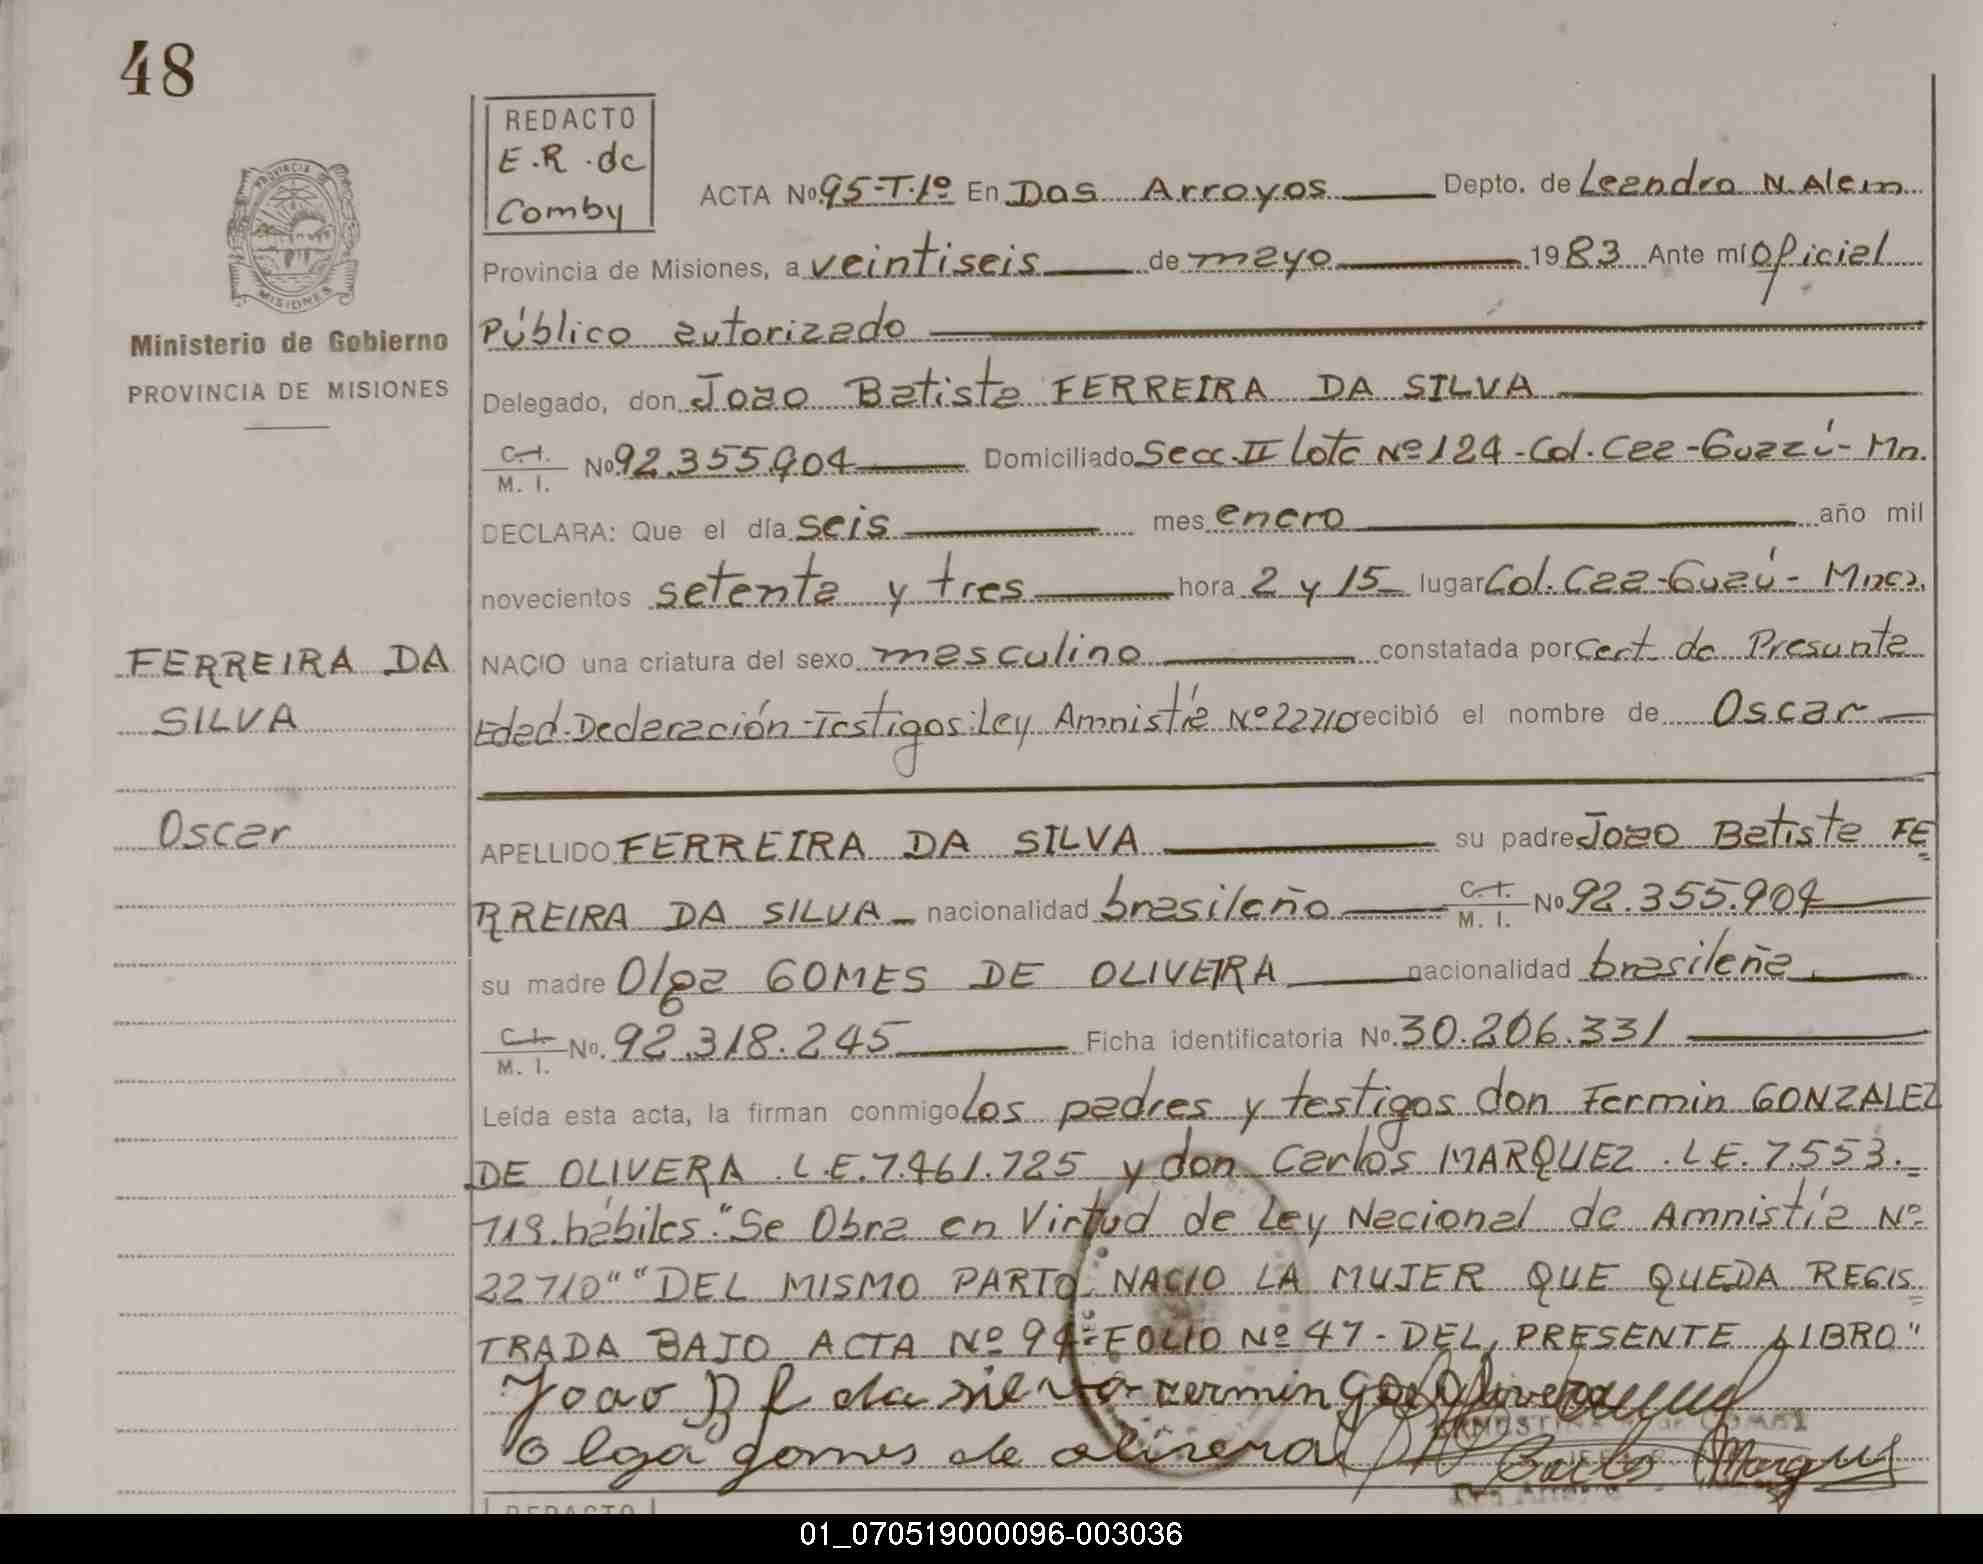 48
REDACTO
E.R. de
Comby
ACTA No. 95-T.1º En Dos Arroyos Depto. de Leandro N. Alem
Provincia de Misiones, a veintiseis de mayo 1983 Ante mí Oficial
Público autorizado
Delegado, don Joao Batista FERREIRA DA SILVA
C.I. M. I. No 92.355.904 Domiciliado Secc. II Lote Nº 124 - Col. Caa-Guazú - Mn.
DECLARA: Que el día seis mes enero año mil
novecientos setenta y tres hora 2 y 15 lugar Col. Caa-Guazú - Mnes.
NACIO una criatura del sexo masculino constatada por Cert. de Presunta
Edad-Declaración-Testigos: Ley Amnistía Nº 22710 recibió el nombre de Oscar
APELLIDO FERREIRA DA SILVA su padre Joao Batista FE
RREIRA DA SILVA nacionalidad brasileño C.I. M. I. No 92.355.904
su madre Olga GOMES DE OLIVEIRA nacionalidad brasileña
C.I. M. I. No. 92.318.245 Ficha identificatoria No. 30.206.331
Leída esta acta, la firman conmigo los padres y testigos don Fermin GONZALEZ
DE OLIVERA L.E. 7.461.725 y don Carlos MARQUEZ. L.E. 7.553.=
719. hábiles. "Se Obra en Virtud de Ley Nacional de Amnistía Nº
22710" "DEL MISMO PARTO NACIO LA MUJER QUE QUEDA REGIS=
TRADA BAJO ACTA Nº 94-FOLIO Nº 47 - DEL PRESENTE LIBRO"
Joao B f da silva Fermin
Olga gomes de olivera Carlos Marques
PROVINCIA DE
MISIONES
Ministerio de Gobierno
PROVINCIA DE MISIONES
FERREIRA DA
SILVA
Oscar
REDACTO
01_070519000096-003036